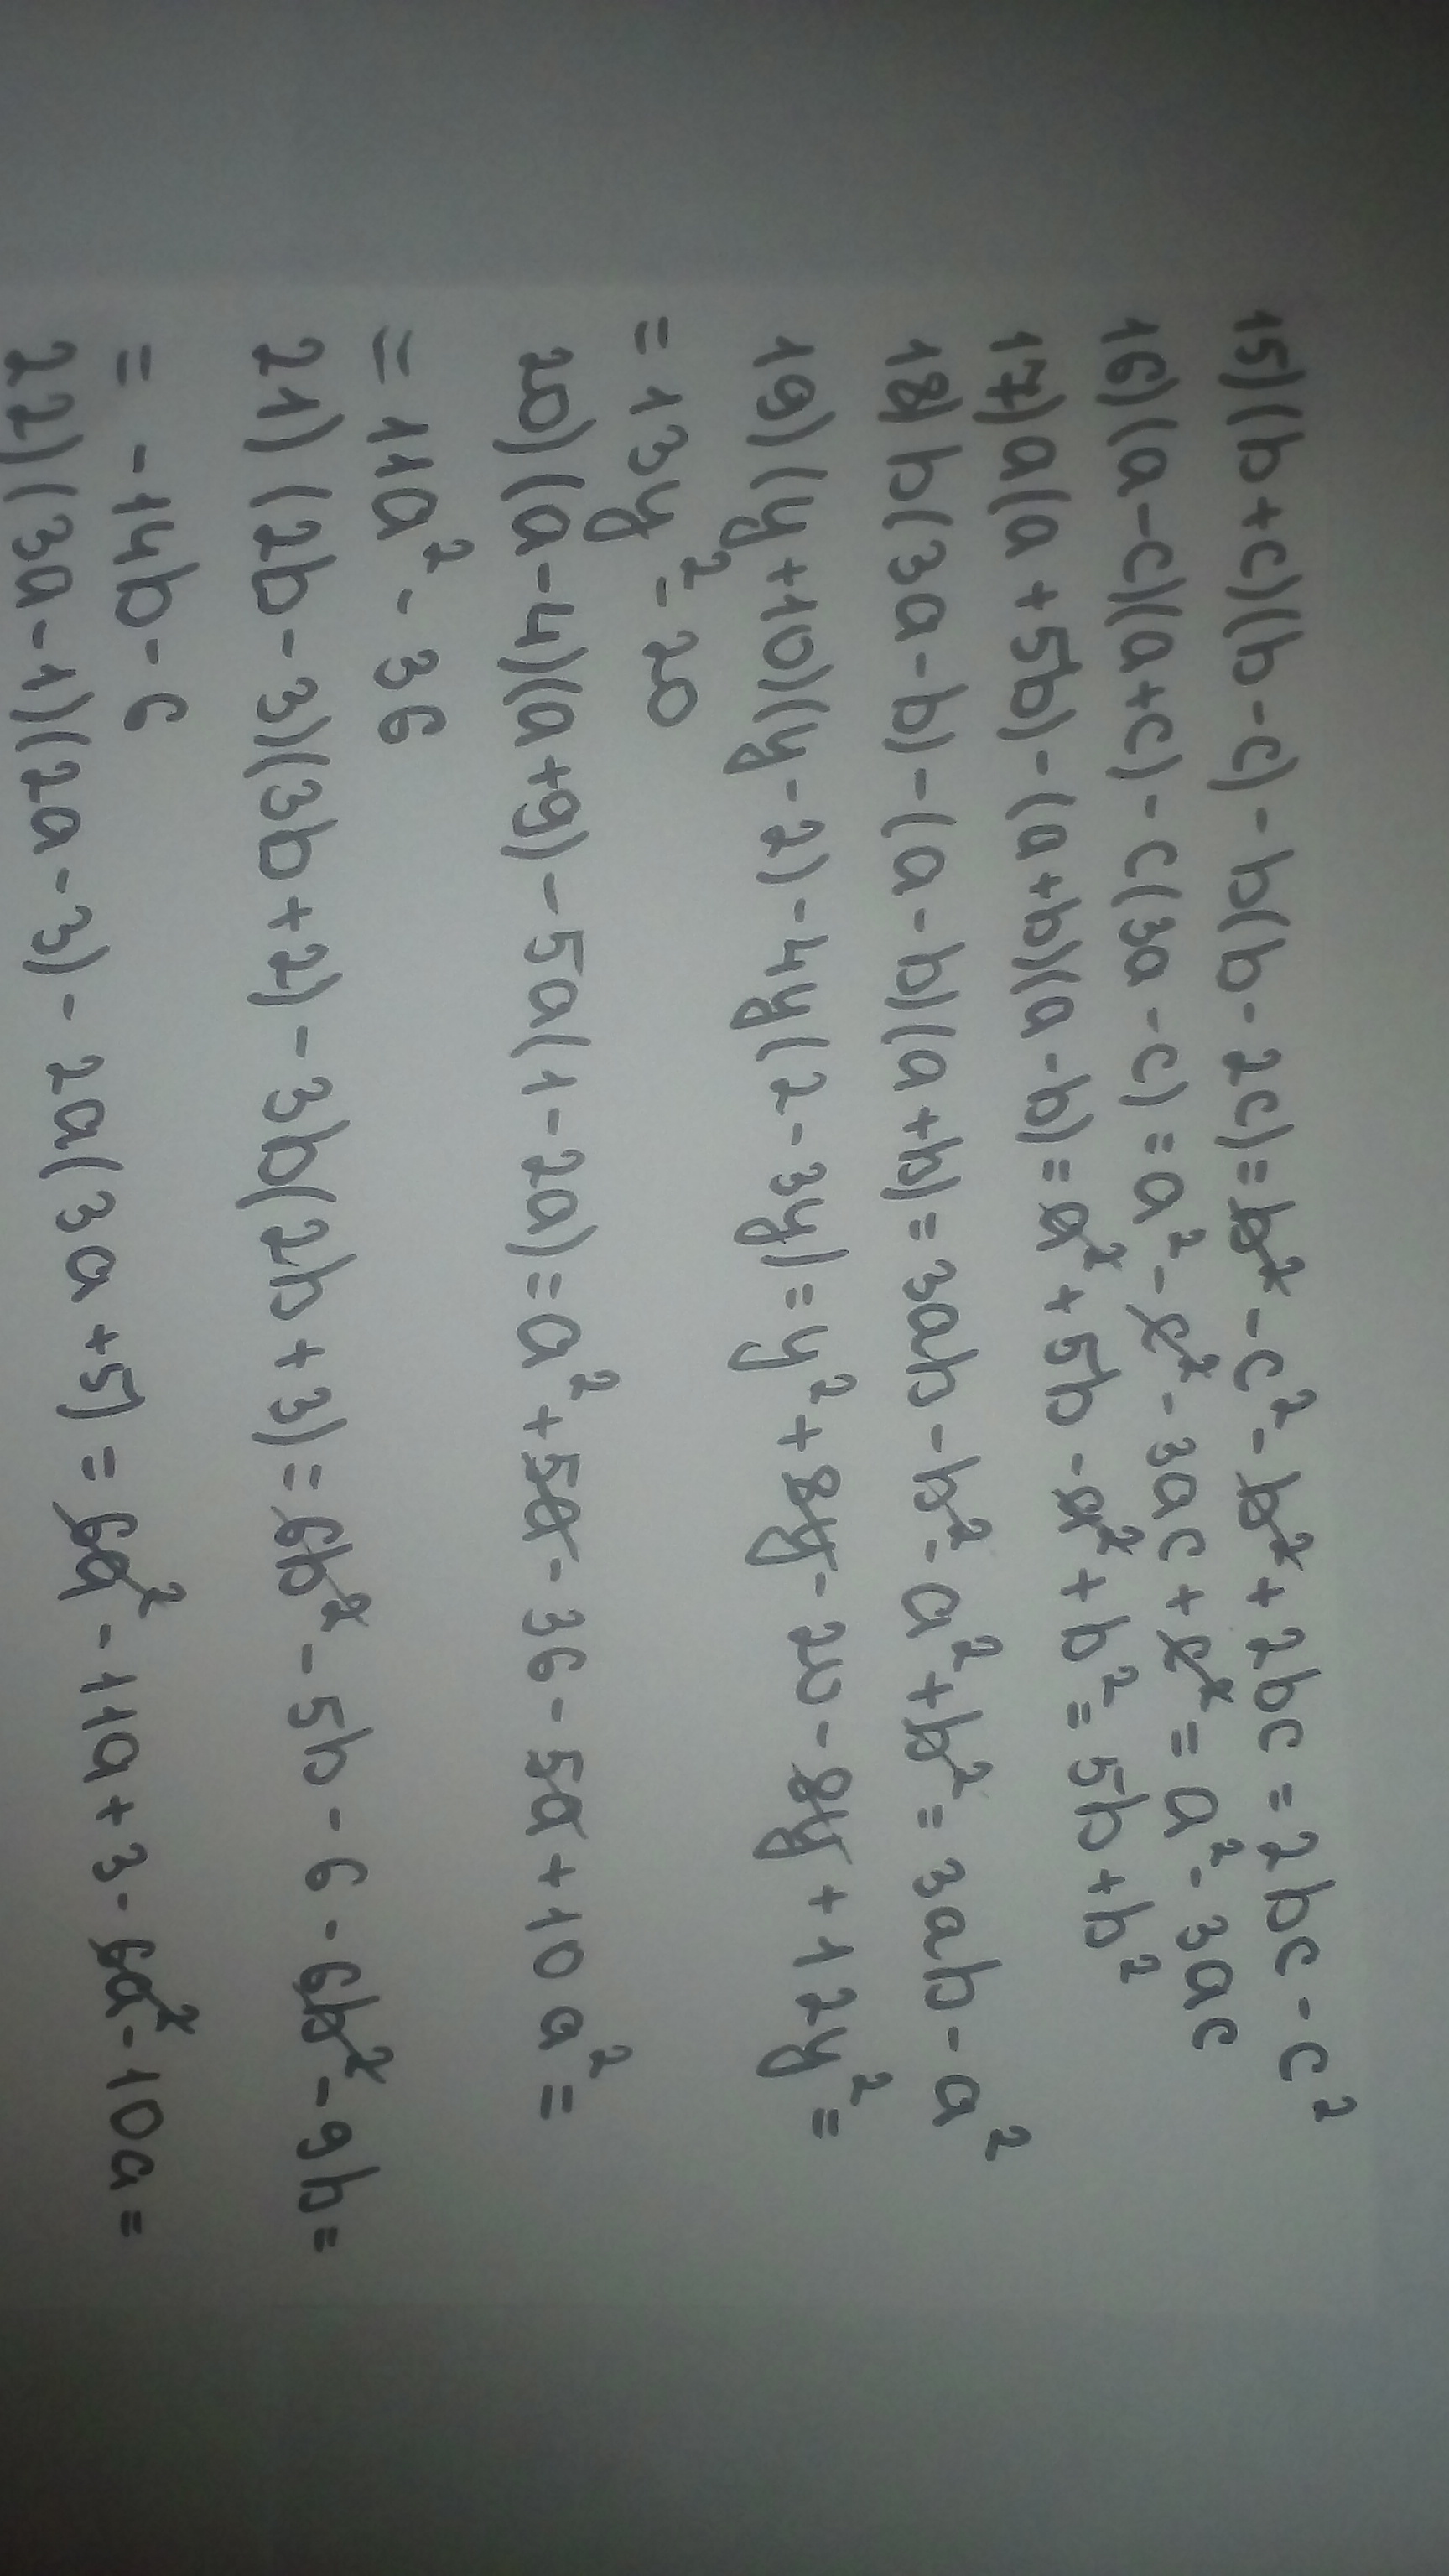 15) (b+c)(b-c)-b(b-2c)=b²-c²-b²+2bc=2bc-c²
16) (a-c)(a+c)-c(3a-c)=a²-c²-3ac+c²=a²-3ac
17) a(a+5b)-(a+b)(a-b)=a²+5b-a²+b²=5b+b²
18) b(3a-b)-(a-b)(a+b)=3ab-b²-a²+b²=3ab-a²
19) (y+10)(y-2)-4y(2-3y)=y²+8y-20-8y+12y²=
=13y²-20
20) (a-4)(a+9)-5a(1-2a)=a²+5a-36-5a+10a²=
=11a²-36
21) (2b-3)(3b+2)-3b(2b+3)=6b²-5b-6-6b²-9b=
=-14b-6
22) (3a-1)(2a-3)-2a(3a+5)=6a²-11a+3-6a²-10a=